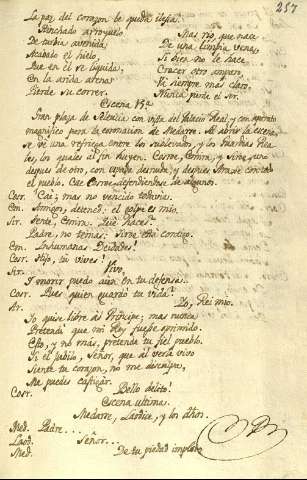 257
La paz del corazon le queda ilesa.
Hinchado arroyuelo
De turbia avenida,
Acabado el hielo
Que en él se liquida,
En la arida arena
Pierde su correr.
Mas rio, que nace
De una limpia vena,
Si bien no le hace
Crecer otro amparo
Vá siempre mas claro,
Nunca pierde el ser.
Escena V.ª
Gran plaza de Nicalia con vista del Palacio Real, y con aparato
magnifico para la coronacion de Medarse. Al abrir la escena,
se vé una refriega entre los sublevados, y las Guardias Rea-
les, los quales al fin huyen. Cosroe, Emira, y Siroe, uno
despues de otro, con espada desnuda; y despues Arasse contra
el pueblo. Cae Cosroe defendiendose de algunos.
Cosr. Caí; mas no vencido todavia.
Em. Amigos, deteneos: el golpe es mio.
Sir. Tente, Emira. Qué haces?
Padre, no temas: Siroe está contigo.
Em. Inhumanas Deidades!
Cosr. Hijo, tú vives?
Sir. Vivo,
I morir puedo aún en tu defensa.
Cosr. Pues quien guardó tu vida?
Ar. Yo, Rei mio.
Yo quise libre al Principe, mas nunca
Pretendí que mi Rey fuesse oprimido.
Esto, y no más, pretende tu fiel pueblo.
Si el jubilo, Señor, que al verlo vivo
Siente tu corazon, no me disculpa,
Me puedes castigar.
Cosr. Bello delito!
Escena ultima.
Medarse, Laodice, y los dhõs.
Med. Padre.....
Laod. Señor...
Med. De tu piedad imploro